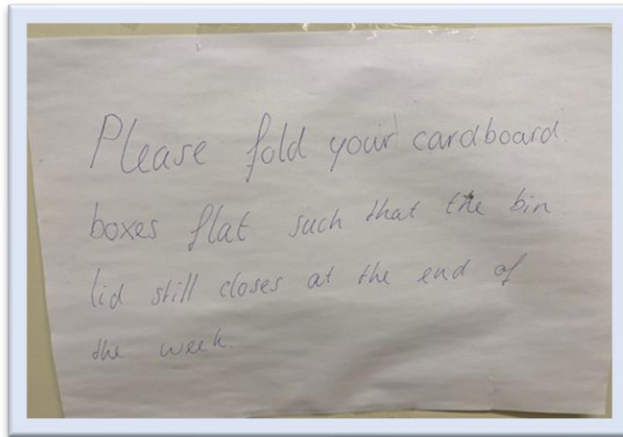 Please fold your cardboard
boxes flat such that the bin
lid still closes at the end of
the week.